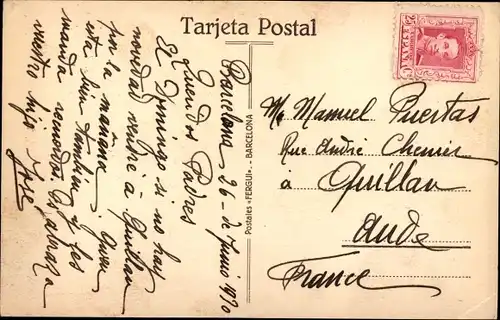 Tarjeta Postal
Barcelona 26 - de Junio 1930
Queridos Padres
El Domingo si no hay
novedad vendré à Quillan
por la mañana. Juan
esta bien tambien y les
manda recuerdos. Os abraza
vuestro hijo José
Postales «FERGUI». - BARCELONA
Mr Manuel Puertas
Rue André Chenier
à Quillan
Aude
France
ESPAÑA